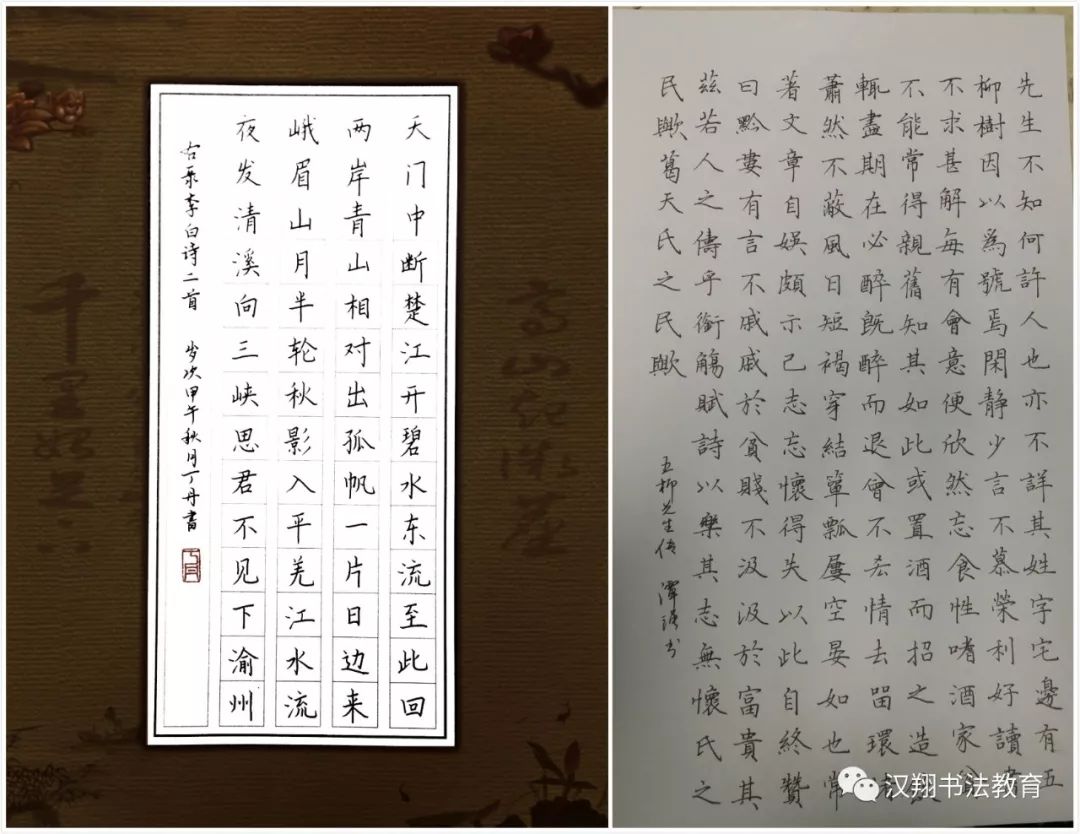 天门中断楚江开碧水东流至此回
两岸青山相对出孤帆一片日边来
峨眉山月半轮秋影入平羌江水流
夜发清溪向三峡思君不见下渝州
右录李白诗二首 岁次甲午秋月丁丹書
先生不知何許人也亦不詳其姓字宅邊有五
柳樹因以爲號焉閑静少言不慕榮利好讀書
不求甚解每有會意便欣然忘食性嗜酒家貧
不能常得親舊知其如此或置酒而招之造
輒盡期在必醉既醉而退曾不吝情去留環
蕭然不蔽風日短褐穿結簞瓢屢空晏如也常
著文章自娱頗示己志忘懷得失以此自終贊
曰黔婁有言不戚戚於貧賤不汲汲於富貴其
茲若人之儔乎銜觴賦詩以樂其志無懷氏之
民歟葛天氏之民歟
五柳先生传 书
汉翔书法教育